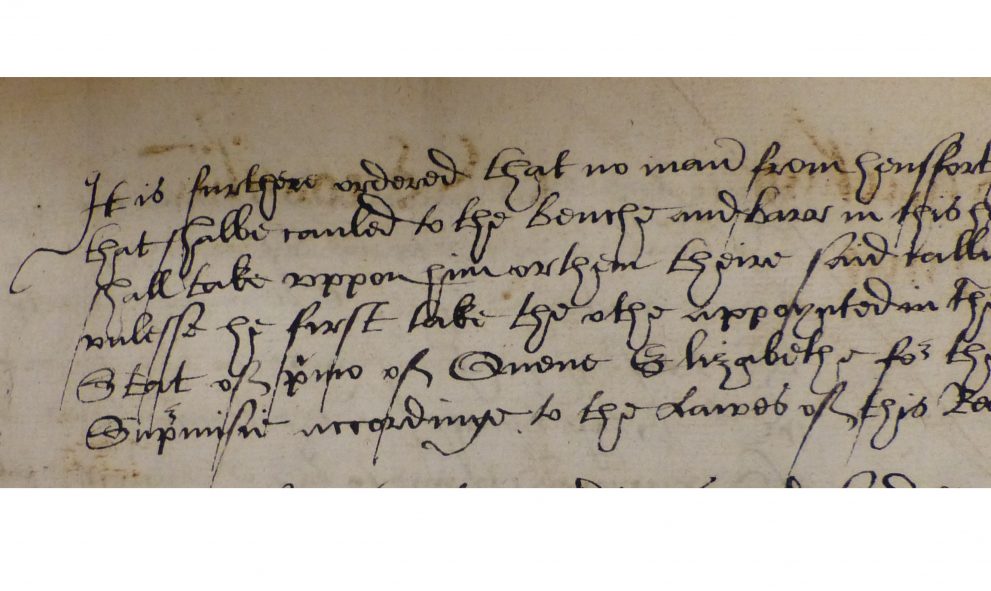 It is further ordered that no man from hensfort
that shalbe cauled to the Benche and Barre in this h
shall take uppon him or them theire said calli
unlesse he first take the othe appoynted in the
Stat of primo of Quene Elizabethe for the
Supmisie accordinge to the Lawes of this Rea